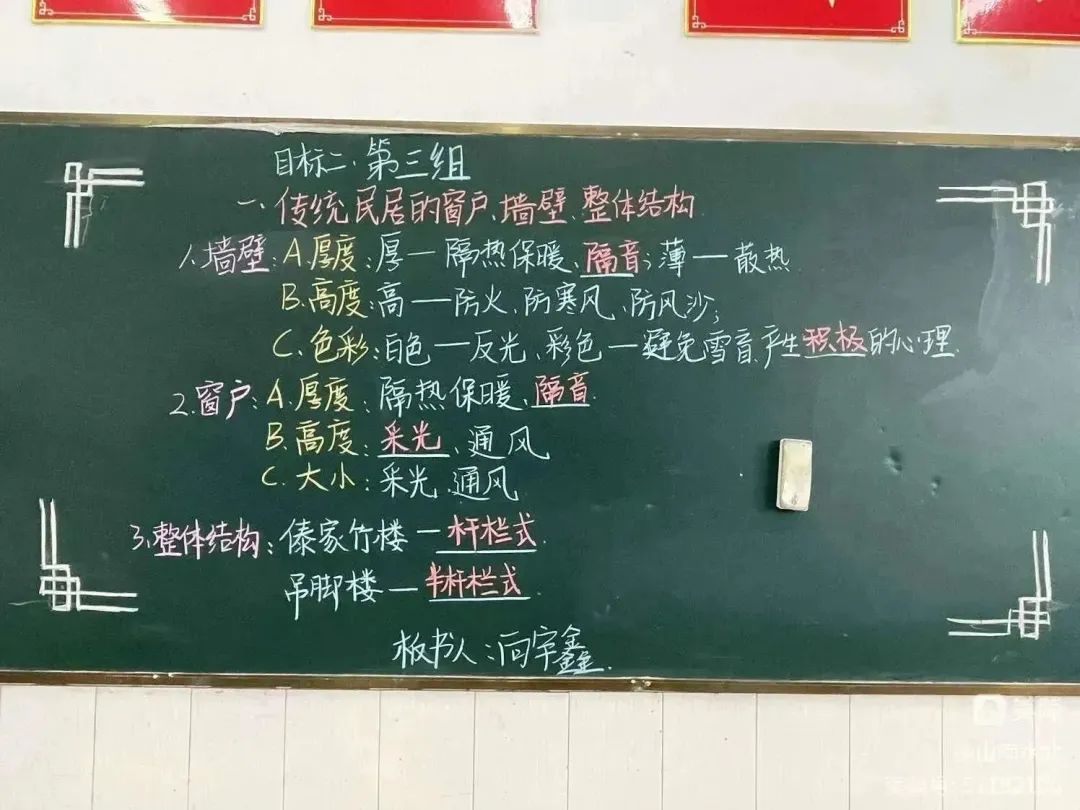 目标二、第三组
一、传统民居的窗户、墙壁、整体结构
1、墙壁：A.厚度：厚—隔热保暖、隔音；薄—散热.
B.高度：高—防火、防寒风、防风沙；
C.色彩：白色—反光、彩色—避免雪盲、产生积极的心理.
2、窗户：A.厚度：隔热保暖、隔音.
B.高度：采光、通风
C.大小：采光、通风
3、整体结构：傣家竹楼—杆栏式.
吊脚楼—半杆栏式.
板书人：向宇鑫.